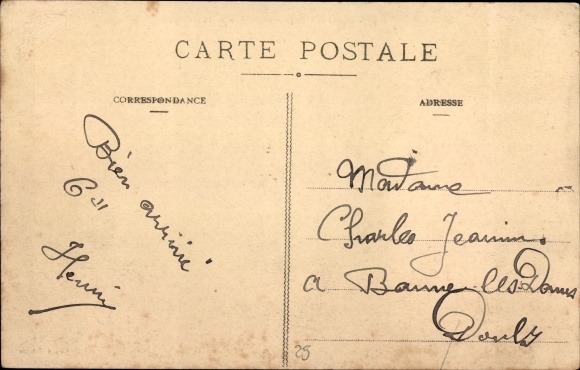 CARTE POSTALE
CORRESPONDANCE
ADRESSE
Bien arrivé
Henri
Madame
Charles Jeannin
a Baume-les-Dames
Doubs
25